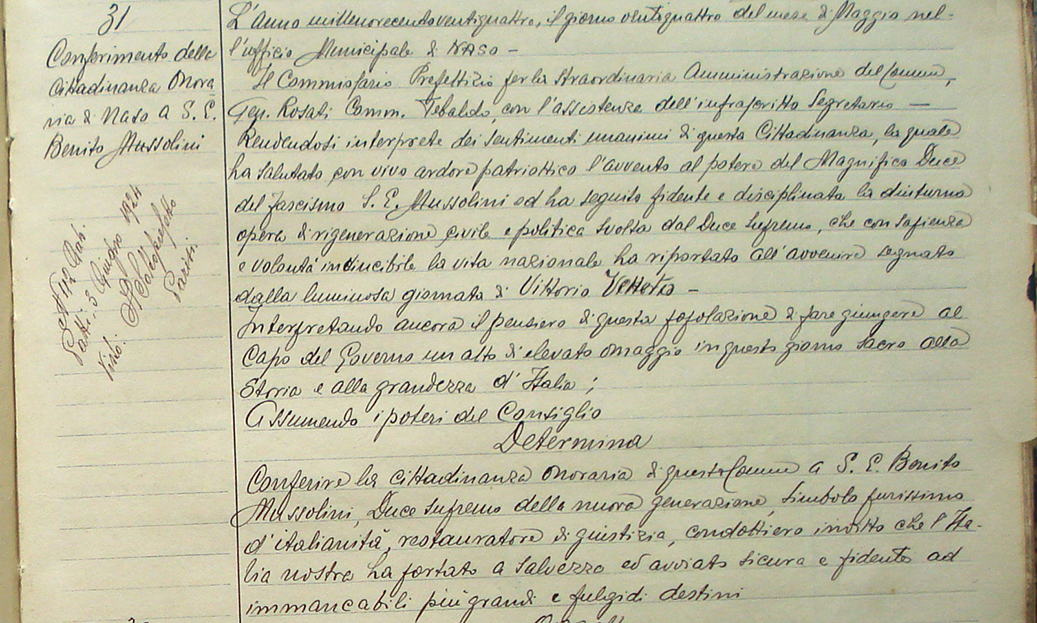 31
Conferimento della
Cittadinanza Onora-
ria di Naso a S. E.
Benito Mussolini
N° 1172 Gab.
Patti: 3 Giugno 1924
Visto: Il Sottoprefetto
L'anno millenovecentoventiquattro, il giorno ventiquattro del mese di Maggio nel-
l'ufficio Municipale di Naso -
Il Commissario Prefettizio per la straordinaria Amministrazione del Comune,
Rosati Comm. Tebaldo, con l'assistenza dell'infrascritto Segretario —
Rendendosi interprete dei sentimenti unanimi di questa Cittadinanza, la quale
ha salutato con vivo ardore patriottico l'avvento al potere del Magnifico Duce
del fascismo S. E. Mussolini ed ha seguito fidente e disciplinata la diuturna
opera di rigenerazione civile e politica svolta dal Duce supremo, che con sapienza
e volontà indicibile la vita nazionale ha riportato all'avvenire segnato
dalla luminosa giornata di Vittorio Veneto -
Interpretando ancora il pensiero di questa popolazione di fare giungere al
Capo del Governo un atto di elevato omaggio in questo giorno sacro alla
Storia e alla grandezza d'Italia;
Assumendo i poteri del Consiglio
Determina
Conferire la cittadinanza onoraria di questo Comune a S. E. Benito
Mussolini, Duce supremo della nuova generazione, simbolo purissimo
d'italianità, restauratore di giustizia, condottiero invitto che l'Ita-
lia nostra ha portato a salvezza ed avviato sicura e fidente ad
immancabili più grandi e fulgidi destini